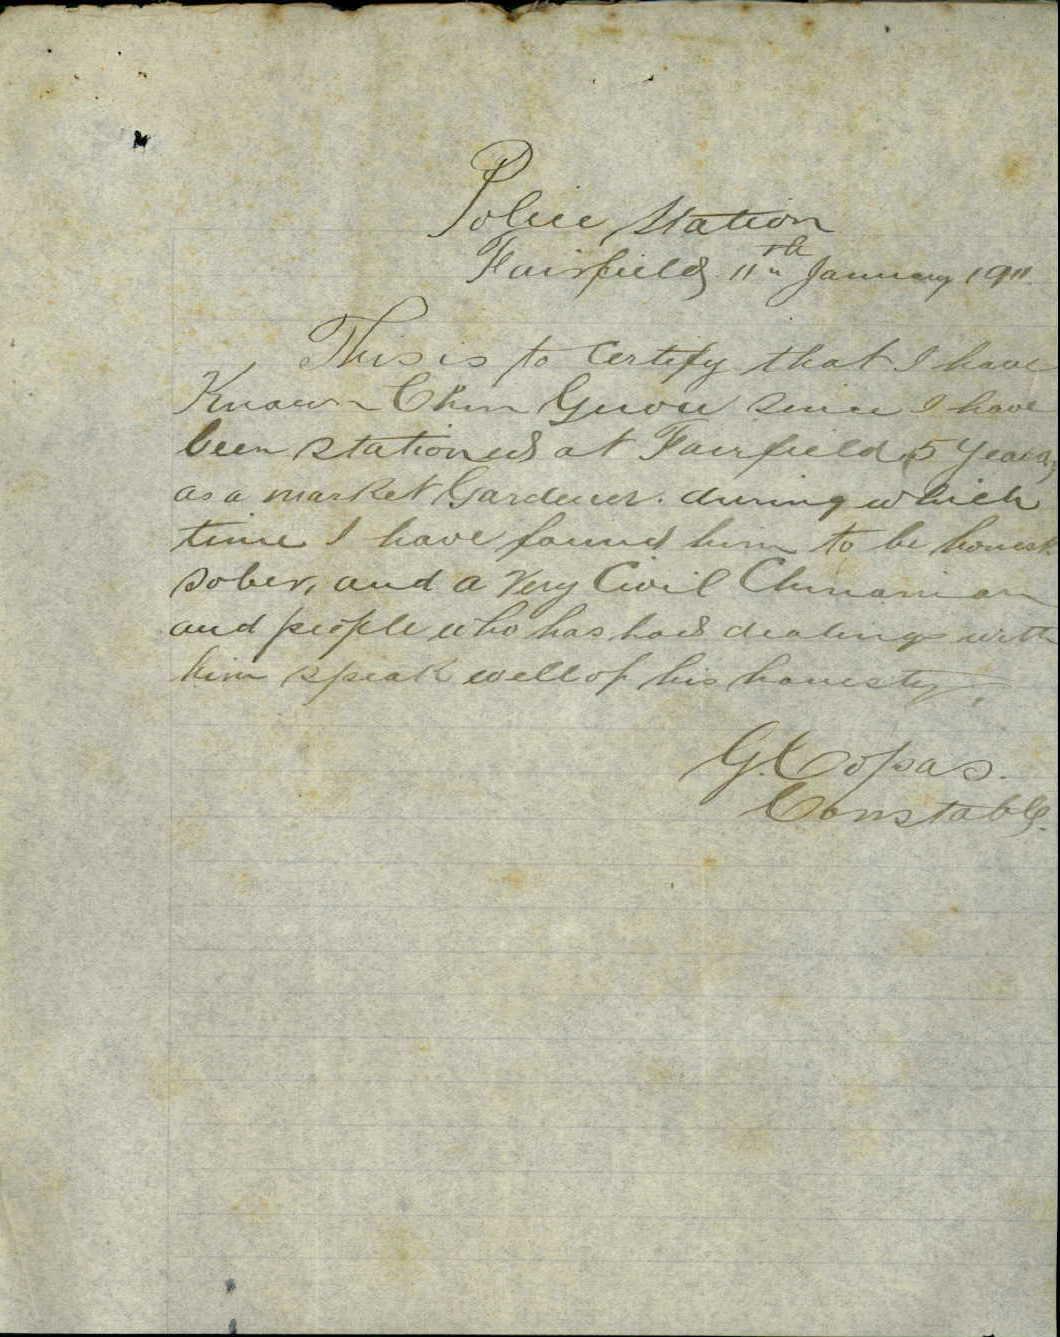 Police Station
Fairfield 11th January 1911
This is to Certify that I have
Known Chin Guose since I have
been stationed at Fairfield 5 years,
as a market Gardener. during which
time I have found him to be honest
sober, and a very Civil Chinaman
and people who has had dealings with
him speak well of his honesty.
G. Copas.
Constable.